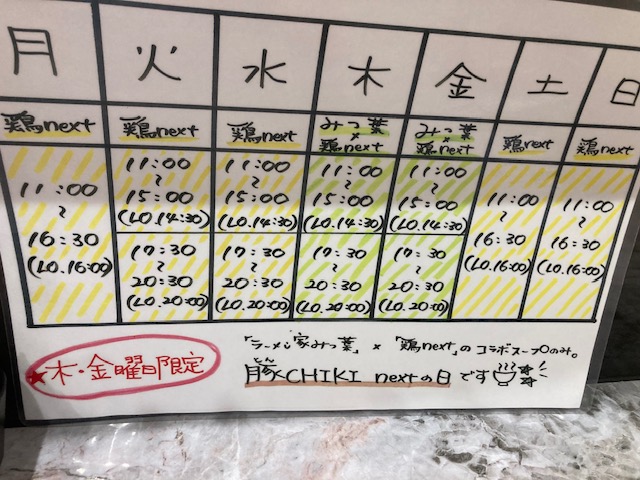 月 火 水 木 金 土 日
鶏next 鶏next 鶏next みつ葉×鶏next みつ葉×鶏next 鶏next 鶏next
11:00〜16:30(LO.16:00)
11:00〜15:00(LO.14:30)
17:30〜20:30(LO.20:00)
11:00〜15:00(LO.14:30)
17:30〜20:30(LO.20:00)
11:00〜15:00(LO.14:30)
17:30〜20:30(LO.20:00)
11:00〜15:00(LO.14:30)
17:30〜20:30(LO.20:00)
11:00〜16:30(LO.16:00)
11:00〜16:30(LO.16:00)
★木・金曜日限定
「ラーメン家みつ葉」×「鶏next」のコラボスープのみ。
とん
豚CHIKI nextの日です